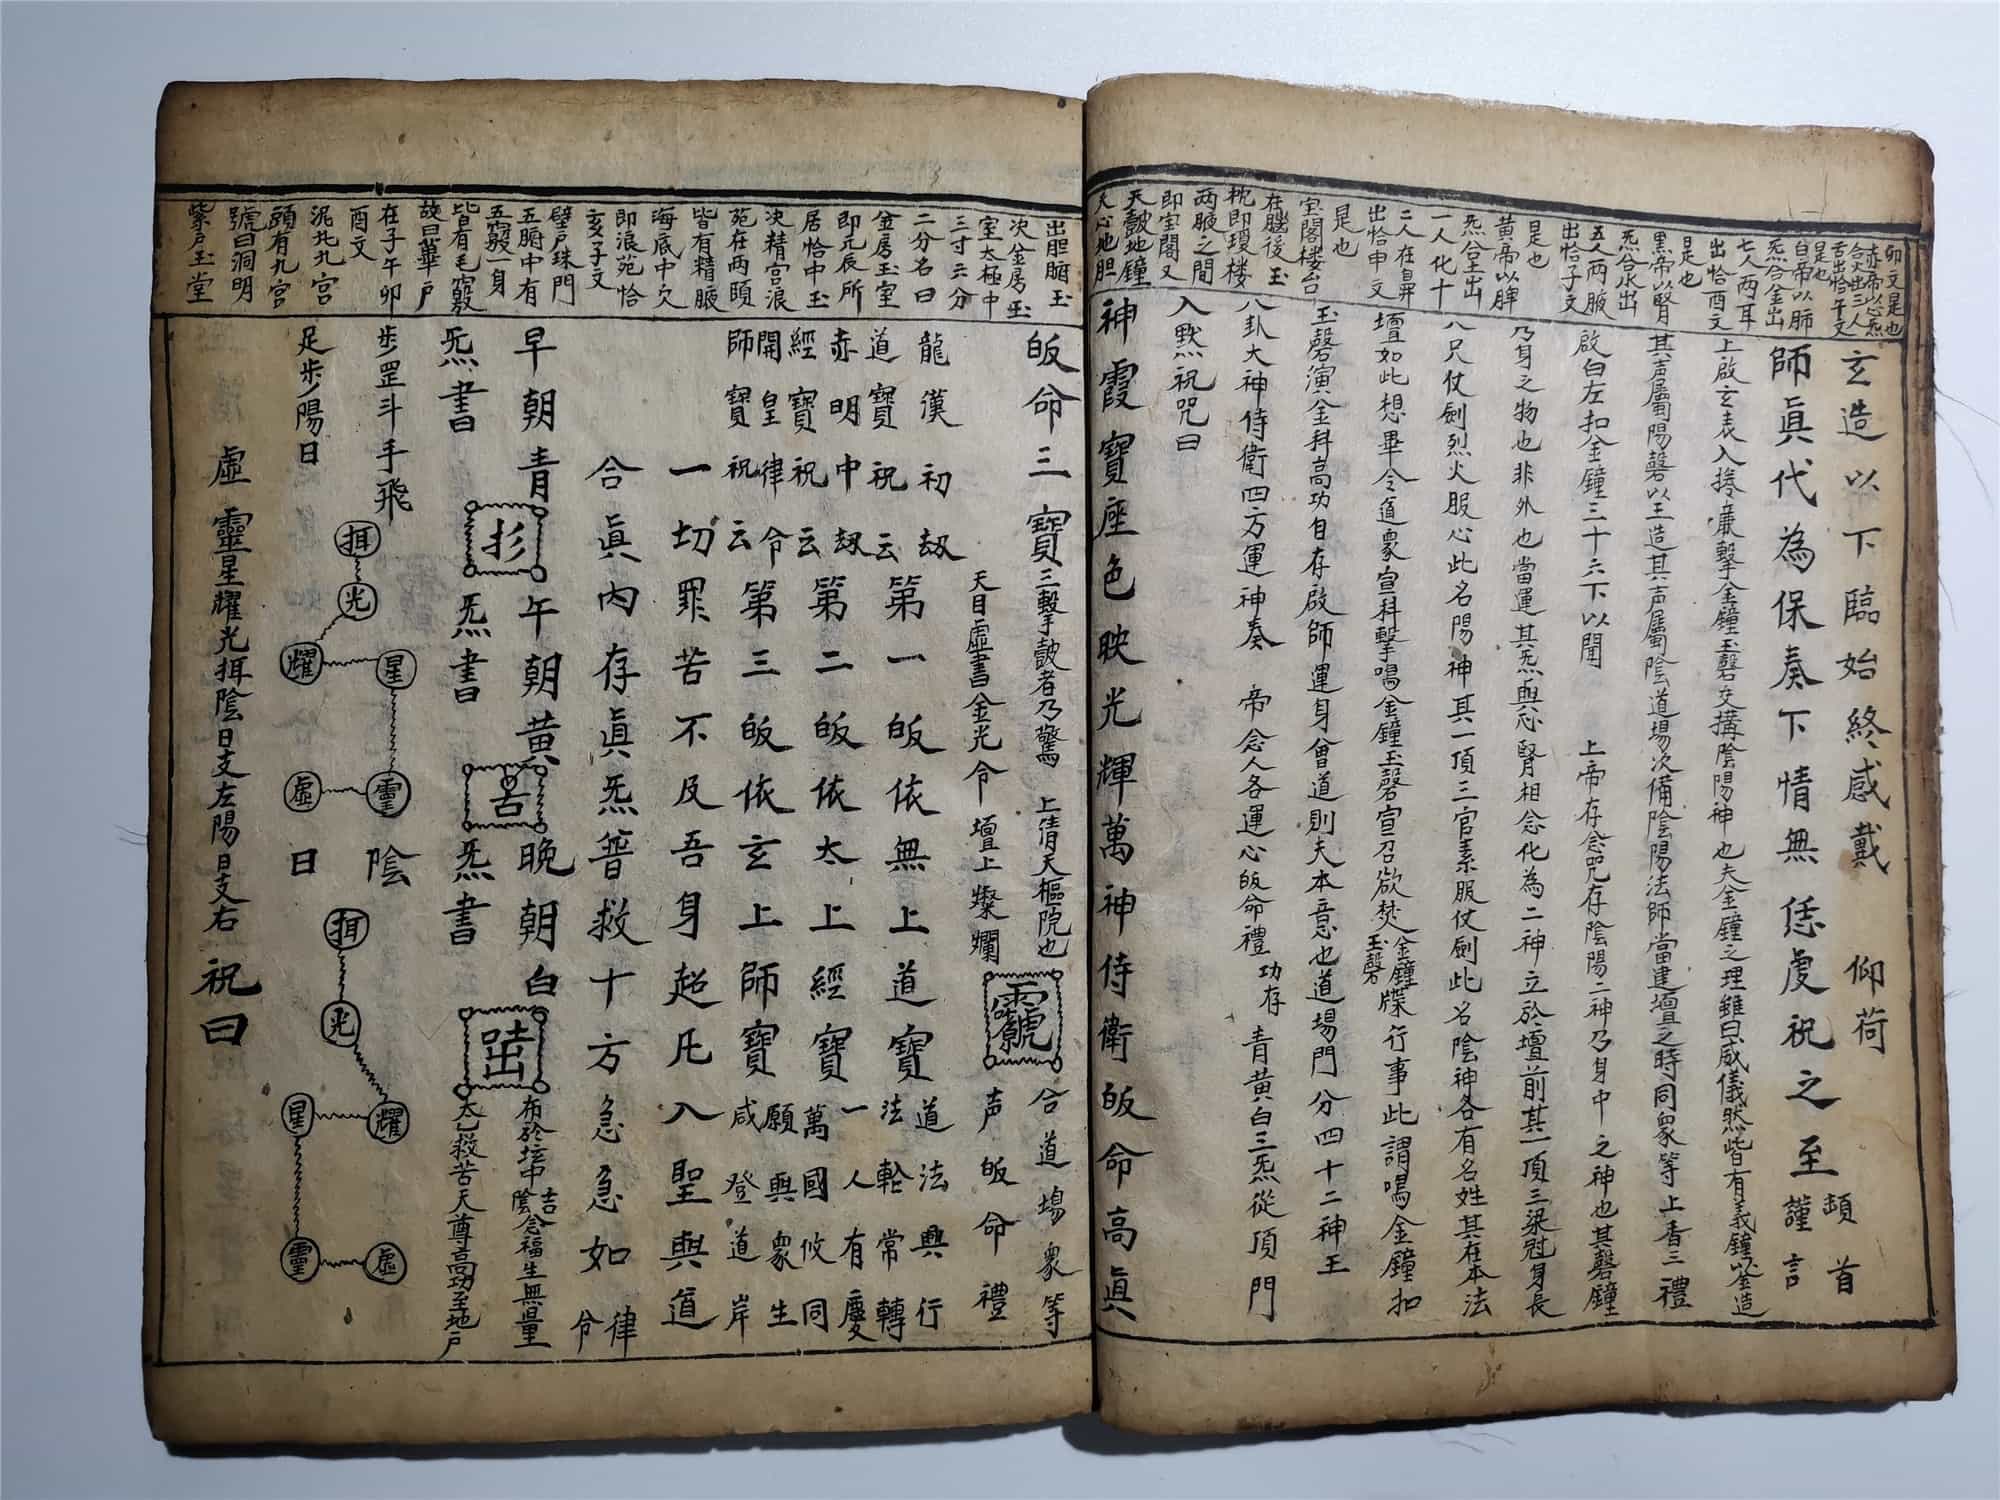 卯文是也
赤帝以心炁
合火出三人
舌出恰午文
是也
白帝以肺
炁合金出
七人两耳
出恰酉文
是也
黑帝以腎
炁合水出
五人两腋
出恰子文
是也
黄帝以脾
炁合土出
一人化十
二人在鼻
出恰申文
是也
室閣楼台
在腦後玉
枕即瓊楼
两腋之間
即室閣又
天皷地鐘
天心地胆
玄造以下臨始終感戴　仰荷
師眞代為保奏下情無任虔祝之至
頓首
謹言
上啟玄表入捲簾擊金鐘玉磬交搆陰陽神也夫金鐘之理雖曰威儀然皆有義鐘以金造
其声屬陽磬以玉造其声屬陰道場次備陰陽法師當建壇之時同衆等上香三禮
啟白左扣金鐘三十六下以聞　上帝存念咒存陰陽二神乃身中之神也其磬鐘
乃身之物也非外也當運其炁與心腎相念化為二神立於壇前其一頂三梁冠身長
八尺仗劍烈火服心此名陽神其一頂三官素服仗劍此名陰神各有名姓其在本法
壇如此想畢令道衆宣科擊鳴金鐘玉磬宣召欲焚金鐘玉磬牒行事此謂鳴金鐘扣
玉磬演金科高功自存啟師運身會道則夫本意也道場門分四十二神王
八卦大神侍衛四方運神奏　帝念人各運心皈命禮　功存　青黄白三炁從頂門
入默祝咒曰
神霞寶座色映光輝萬神侍衛皈命高眞
出胆腑玉
次金房玉
室太極中
三寸三分
二分名曰
金房玉室
即元辰所
居恰中玉
决精宫浪
苑在两頤
皆有精腋
海底中欠
即浪苑恰
亥子文
壁戸珠門
五腑中有
五竅一身
皆有毛竅
故曰華戸
在子午卯
酉文
泥丸九宫
頭有九宫
號曰洞明
紫戸玉堂
皈命三寶三擊皷者乃驚　上清天樞院也　合道場衆等
天目虚書金光令　壇上燦爛　声皈命禮
龍漢初劫
道寶祝云　第一皈依無上道寶　道法興行
法輪常轉
赤明中劫
經寶祝云　第二皈依太上經寶　一人有慶
萬國攸同
開皇律令
師寶祝云　第三皈依玄上師寶　願與衆生
咸登道岸
一切罪苦不及吾身超凡入聖與道
合眞内存眞炁普救十方急急如律令
早朝青　午朝黄　晚朝白　布於坛中陰念福生無量
炁書　炁書　炁書　太乙救苦天尊高功至地戸
步罡斗手飛
足步陽日
弭
光
耀
星
靈
虚
陰
日
弭
光
耀
星
靈
虚
虚靈星耀光弭陰日支左陽日支右　祝曰